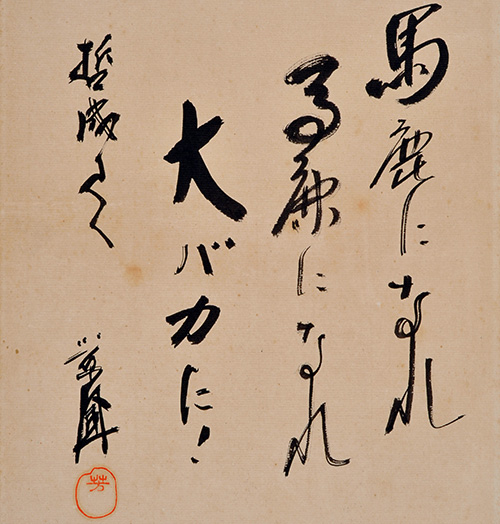 馬鹿になれ
馬鹿になれ
大バカに!
哲成さん
芳